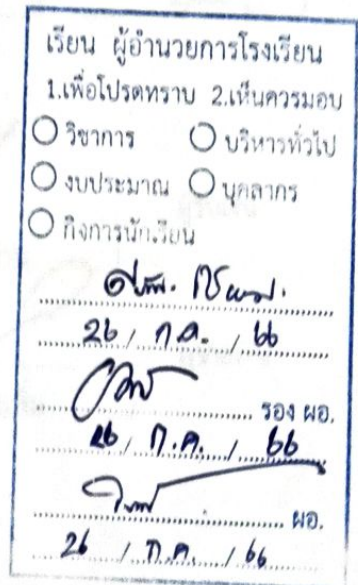 เรียน ผู้อำนวยการโรงเรียน
1.เพื่อโปรดทราบ 2.เห็นควรมอบ
วิชาการ บริหารทั่วไป
งบประมาณ บุคลากร
กิจการนักเรียน
26 / ก.ค. / 66
รอง ผอ.
26 / ก.ค. / 66
ผอ.
26 / ก.ค. / 66